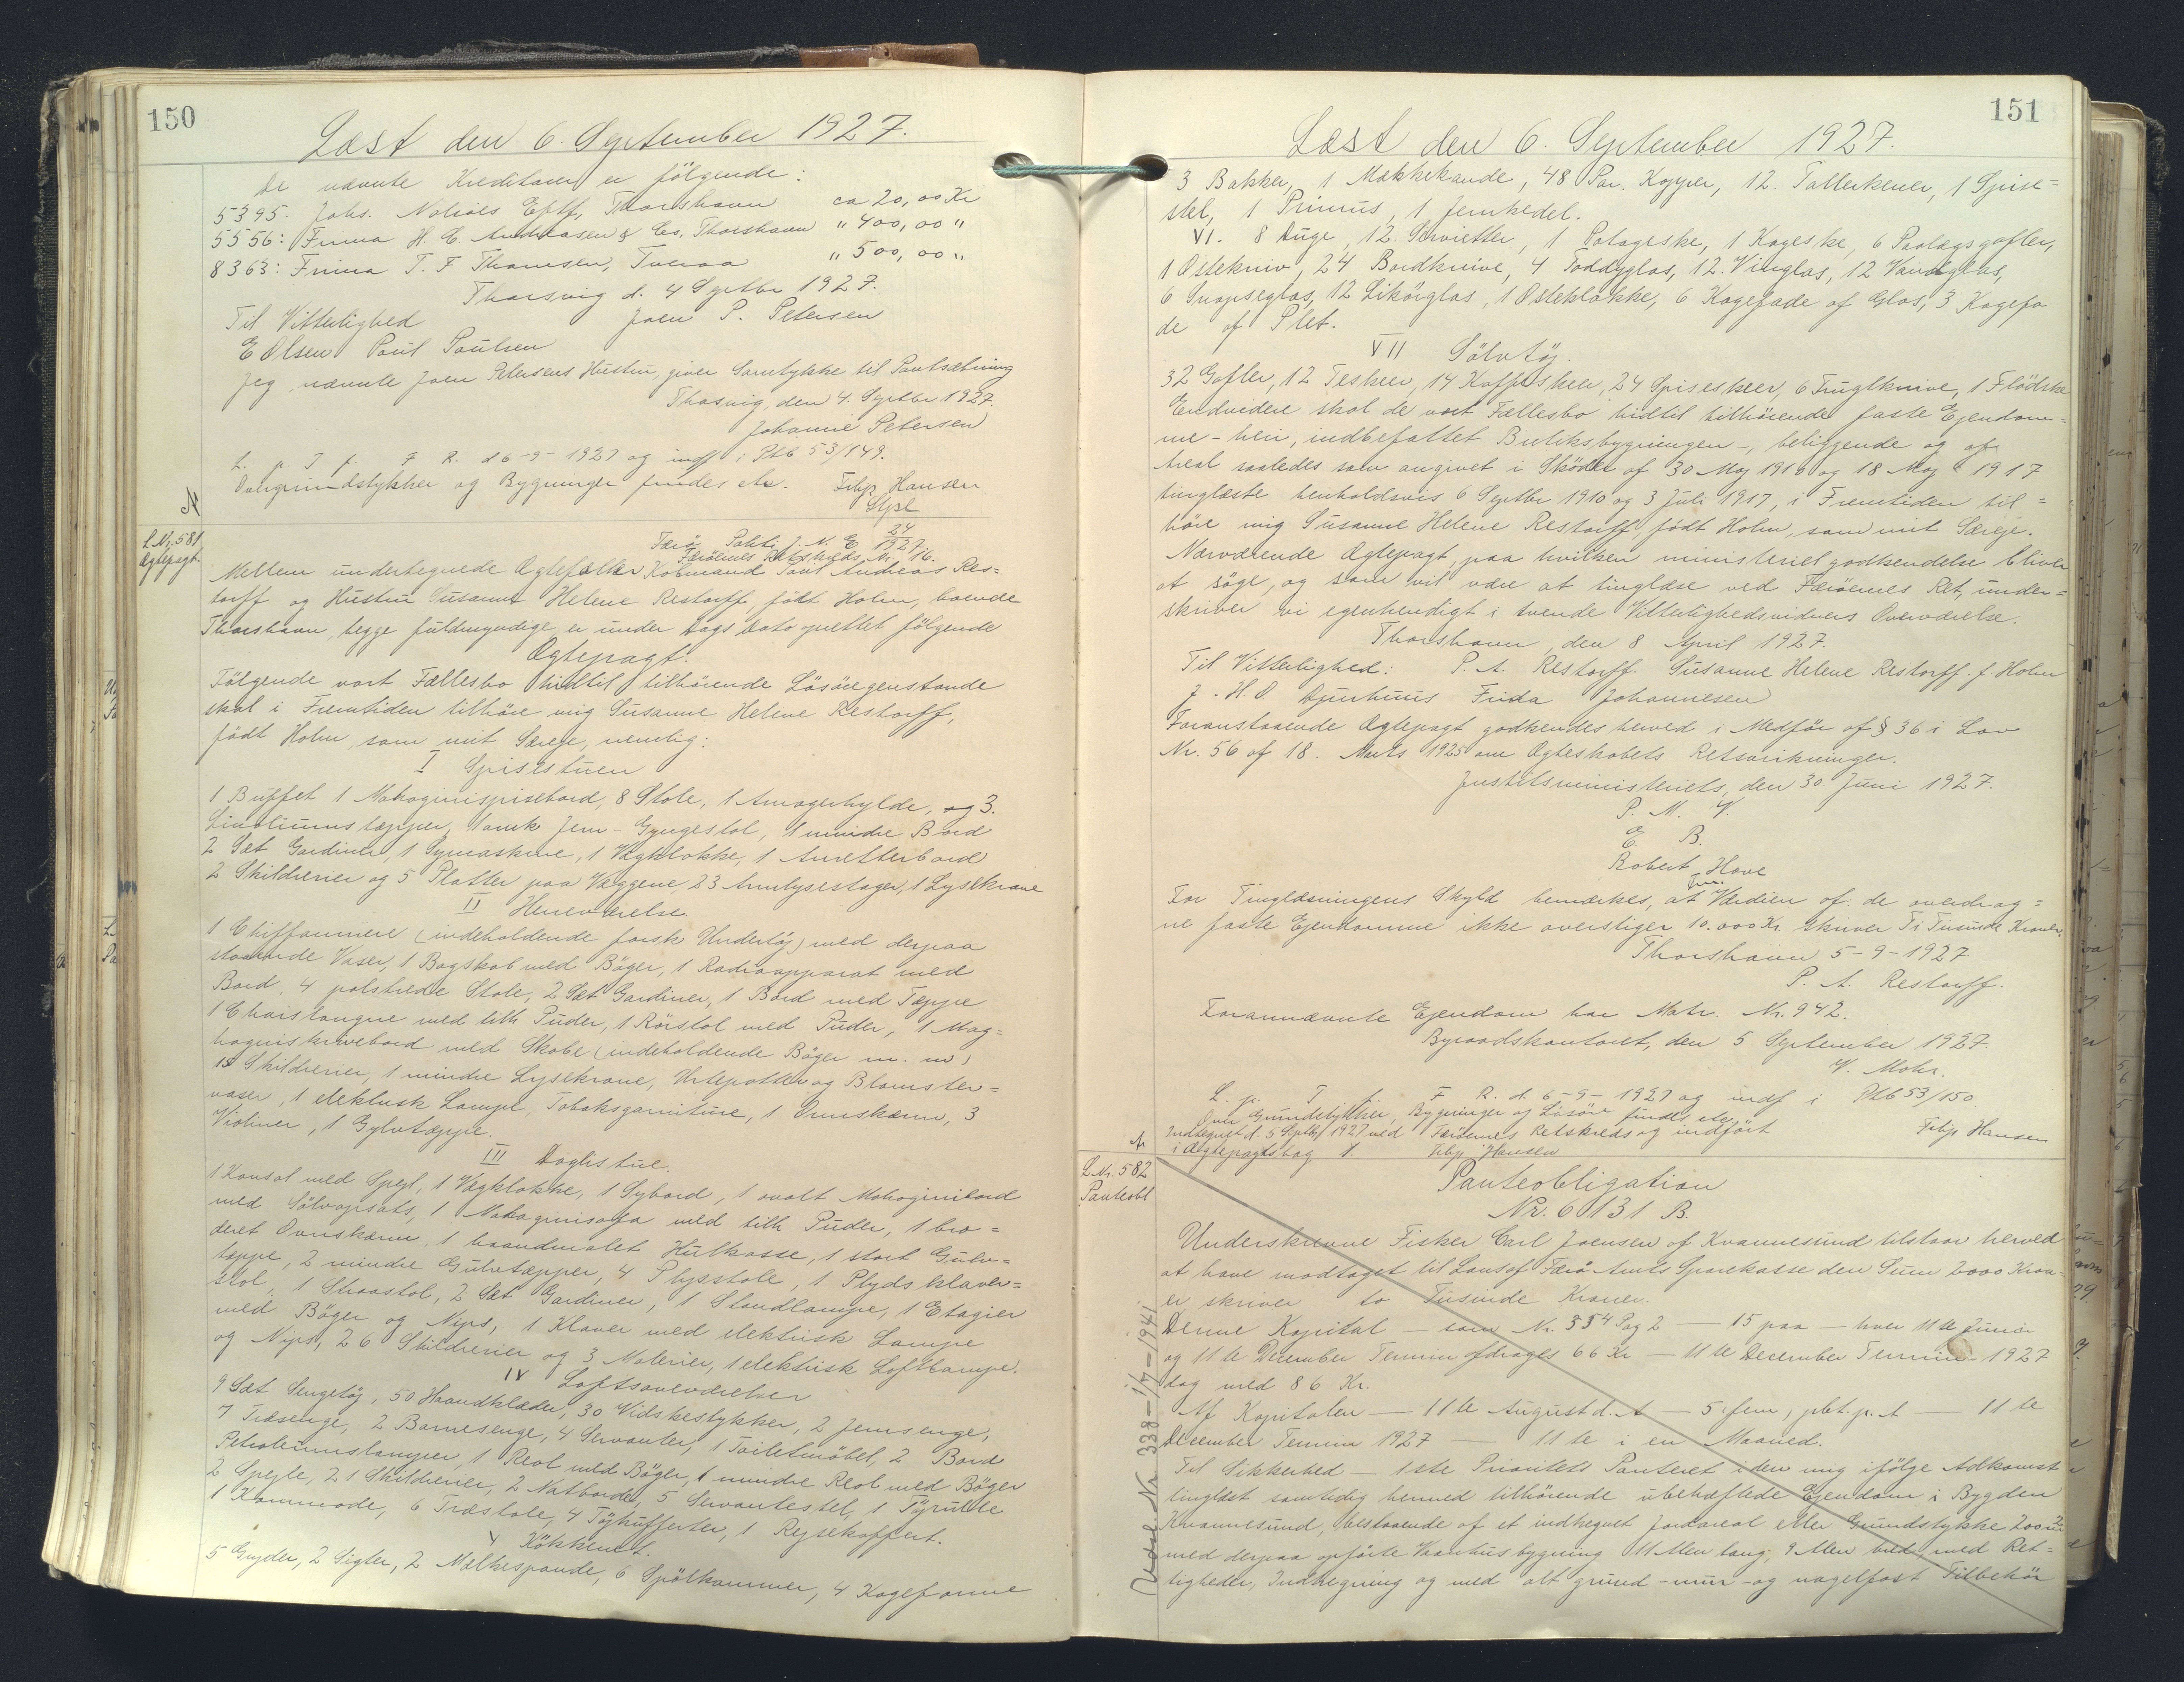 150
Læst den 6. September 1927.
De nævnte Kreditorer er følgende:
5395. Johs. Nolsøes Eftf, Thorshavn ca 20,00 Kr
5556: Firma H. C. Andreasen & Co, Thorshavn " 400,00 "
8363: Firma T. F. Thomsen, Tveraa " 500,00 "
Thorsvig d. 4 Septbr 1927.
Til Vitterlighed Joen P. Petersen
E Olsen Poul Poulsen
Jeg nævnte Joen Petersens Hustru, giver Samtykke til Pantsætning
Thosvig, den 4. Septbr 1927.
Johanne Petersen
L. p. T f. F. R. d 6-9-1927 og indf i Ptb 53/149.
Ovengrundstykker og Bygninger findes etc. Filip Hansen
Stpl
N
L.Nr. 581
Ægtepagt.
Færø Politi J. N. E 24/1927
Færöernes Retskreds Nr. 16.
Mellem undertegnede Ægtefæller Købmand Poul Andreas Res=
torff og Hustru Susanne Helene Restorff, født Holm, boende
Thorshavn, begge fuldmyndige, er under Dags Dato oprettet følgende
Ægtepagt.
Følgende vort Fællesbo hidtil tilhørende Løsöregenstande
skal i Fremtiden tilhøre mig Susanne Helene Restorff,
født Holm, som mit Særeje, nemlig:
I Spisestuen
1 Buffet 1 Mahognispisebord, 8 Stole, 1 Amagerhylde, og 3.
Linoliumstæpper, 1 amk Jern-Gyngestol, 1 mindre Bord
2 Sæt Gardiner, 1 Symaskine, 1 Vægklokke, 1 Anretterbord
2 Skilderier og 5 Platter paa Væggene, 23 Armlysestager, 1 Lysekrone
II Herreværelse.
1 Chiffonniere (indeholdende forsk Undertøj) med derpaa
staaende Vaser, 1 Bogskab med Bøger, 1 Radioapparat med
Bord, 4 polstrede Stole, 2 Sæt Gardiner, 1 Bord med Tæppe
1 Chaislongue med tilh Puder, 1 Rörstol med Puder, 1 Mag=
hogniskrivebord med Skabe (indeholdende Bøger m. m)
18 Skilderier, 1 mindre Lysekrone, Urtepotter og Blomster=
vaser, 1 elektrisk Lampe, Tobaksgarniture, 1 Ovnskærm, 3
Violiner, 1 Gylvtæppe.
III Daglistue.
1 Konsol med Spejl, 1 Vægklokke, 1 Sybord, 1 ovalt Mahognibord
med Sölvopsats, 1 Mahagnisofa med tilh Puder, 1 bro=
deret Ovnskærm, 1 haandmalet Hulkasse, 1 stort Gulv=
tæppe, 2 mindre Gulvtæpper, 4 Plysstole, 1 Plyds klaver=
stol, 1 Straastol, 2 Sæt Gardiner, 1 Standlampe, 1 Etagier
med Bøger og Nips, 1 Klaver med elektrisk Lampe
og Nips, 26 Skilderier og 3 Malerier, 1 elektrisk Loftlampe.
IV Loftsoveværelser
9 Sæt Sengetöj, 50 Haandklæder, 30 Vidskestykker, 2 Jernsenge,
7 Træsenge, 2 Barnesenge, 4 Servanter, 1 Toiletmöbel, 2 Bord
Petroleumslamper, 1 Reol med Bøger, 1 mindre Reol med Bøger
2 Spejle, 21 Skilderier, 2 Natborde, 5 Servantestel, 1 Töjrulle
1 Kommode, 6 Træstole, 4 Töjkufferter, 1 Rejsekoffert.
V Kökkenet.
5 Gryder, 2 Sigter, 2 Malkespande, 6 Spölkummer, 4 Kageforme
151
Læst den 6. September 1927.
3 Bakker, 1 Mælkekande, 48 Par. Kopper, 12. Tallerkener, 1 Spise=
stel, 1 Primus, 1 Jernkedel.
VI. 8 Duge, 12. Servietter, 1 Potageske, 1 Kageske, 6 Paalægsgafler,
1 Ostekniv, 24 Bordknive, 4 Toddyglas, 12. Vinglas, 12 Vandglas,
6 Snapseglas, 12 Likörglas, 1 Osteklokke, 6 Kagefade af Glas, 3 Kagefa
de af Plet.
VII Sölvtöj.
32 Gafler, 12 Teskeer, 14 Kaffeskeer, 24 Spiseskeer, 6 Frugtknive, 1 Flödske
Endvidere skal de vort Fællesbo hidtil tilhörende faste Ejendom=
me - heri, indbefattet Butiksbygningen -, beliggende og af
Areal saaledes som angivet i Skøder af 30 Maj 1910 og 18 Maj 1917
tinglæste henholdsvis 6 Septbr 1910 og 3 Juli 1917, i Fremtiden til=
höre mig Susanne Helene Restorff født Holm, som mit Særeje.
Nærværende Ægtepagt, paa hvilken ministeriel godkendelse bliver
at söge, og som vil være at tinglæse ved Færöernes Ret, under=
skriver vi egenhendigt i tvende Vitterlighedsvidners Overværelse.
Thorshavn, den 8 April 1927.
Til Vitterlighed: P. A. Restorff. Susanne Helene Restorff. f Holm
J. H. O Djurhuus Frida Johannesen
Foranstaaende Ægtepagt godkendes herved i Medför af § 36 i Lov
Nr. 56 af 18. Marts 1925 om Ægteskabets Retsvirkninger.
Justitsministeriets, den 30 Juni 1927.
P. M. V.
E. B.
Robert Hove
fm.
For Tinglæsningens Skyld bemærkes, at Værdien af de overdrag=
ne faste Ejendomme ikke overstiger 10.000 Kr. skriver Ti Tusinde Kroner.
Thorshavn 5-9-1927
P. A. Restorff.
Forannævnte Ejendom har Matr. Nr. 942.
Byraadskontoret, den 5 September 1927.
V. Mohr.
L. p. T f. F R. d. 6-9-1927 og indf i Ptb 53/150
Om Grundstykker, Bygninger og Lösöre findes etc
Indtegnet d. 5 Septbr 1927 ved Færöernes Retskreds og indført Filip Hansen
i Ægtepagtsbog 1. Filip Hansen
N
L.Nr. 582
Panteobl
Panteobligation
Nr. 6131 B.
Underskrevne Fisker Carl Joensen af Kvannesund tilstaar herved
at have modtaget til Laan af Færø Amts Sparekasse den Sum 2000 Kron-
er skriver to Tusinde Kroner.
Denne Kapital - som Nr. 554 Pag 2 - 15 paa - hver 11te Juni
og 11te December Termin afdrages 66 Kr - 11te December Termin 1927
dog med 86 Kr.
Af Kapitalen - 11te August d. A - 5, fem, pCt. p. A - 11te
December Termin 1927 - 11te i en Maaned.
Til Sikkerhed - 1ste Prioritets Panteret i den mig ifølge Adkomst
tinglæst samtidig hermed tilhørende ubehæftede Ejendom i Bygden
Kvannesund, bestaaende af et indhegnet Jordareal eller Grundstykke 200 m2
med derpaa opførte Vaanhusbygning 11 Alen lang, 9 Alen bred med Ret=
tigheder, Indhegning og med alt grund-mur-og nagelfast Tilbehör